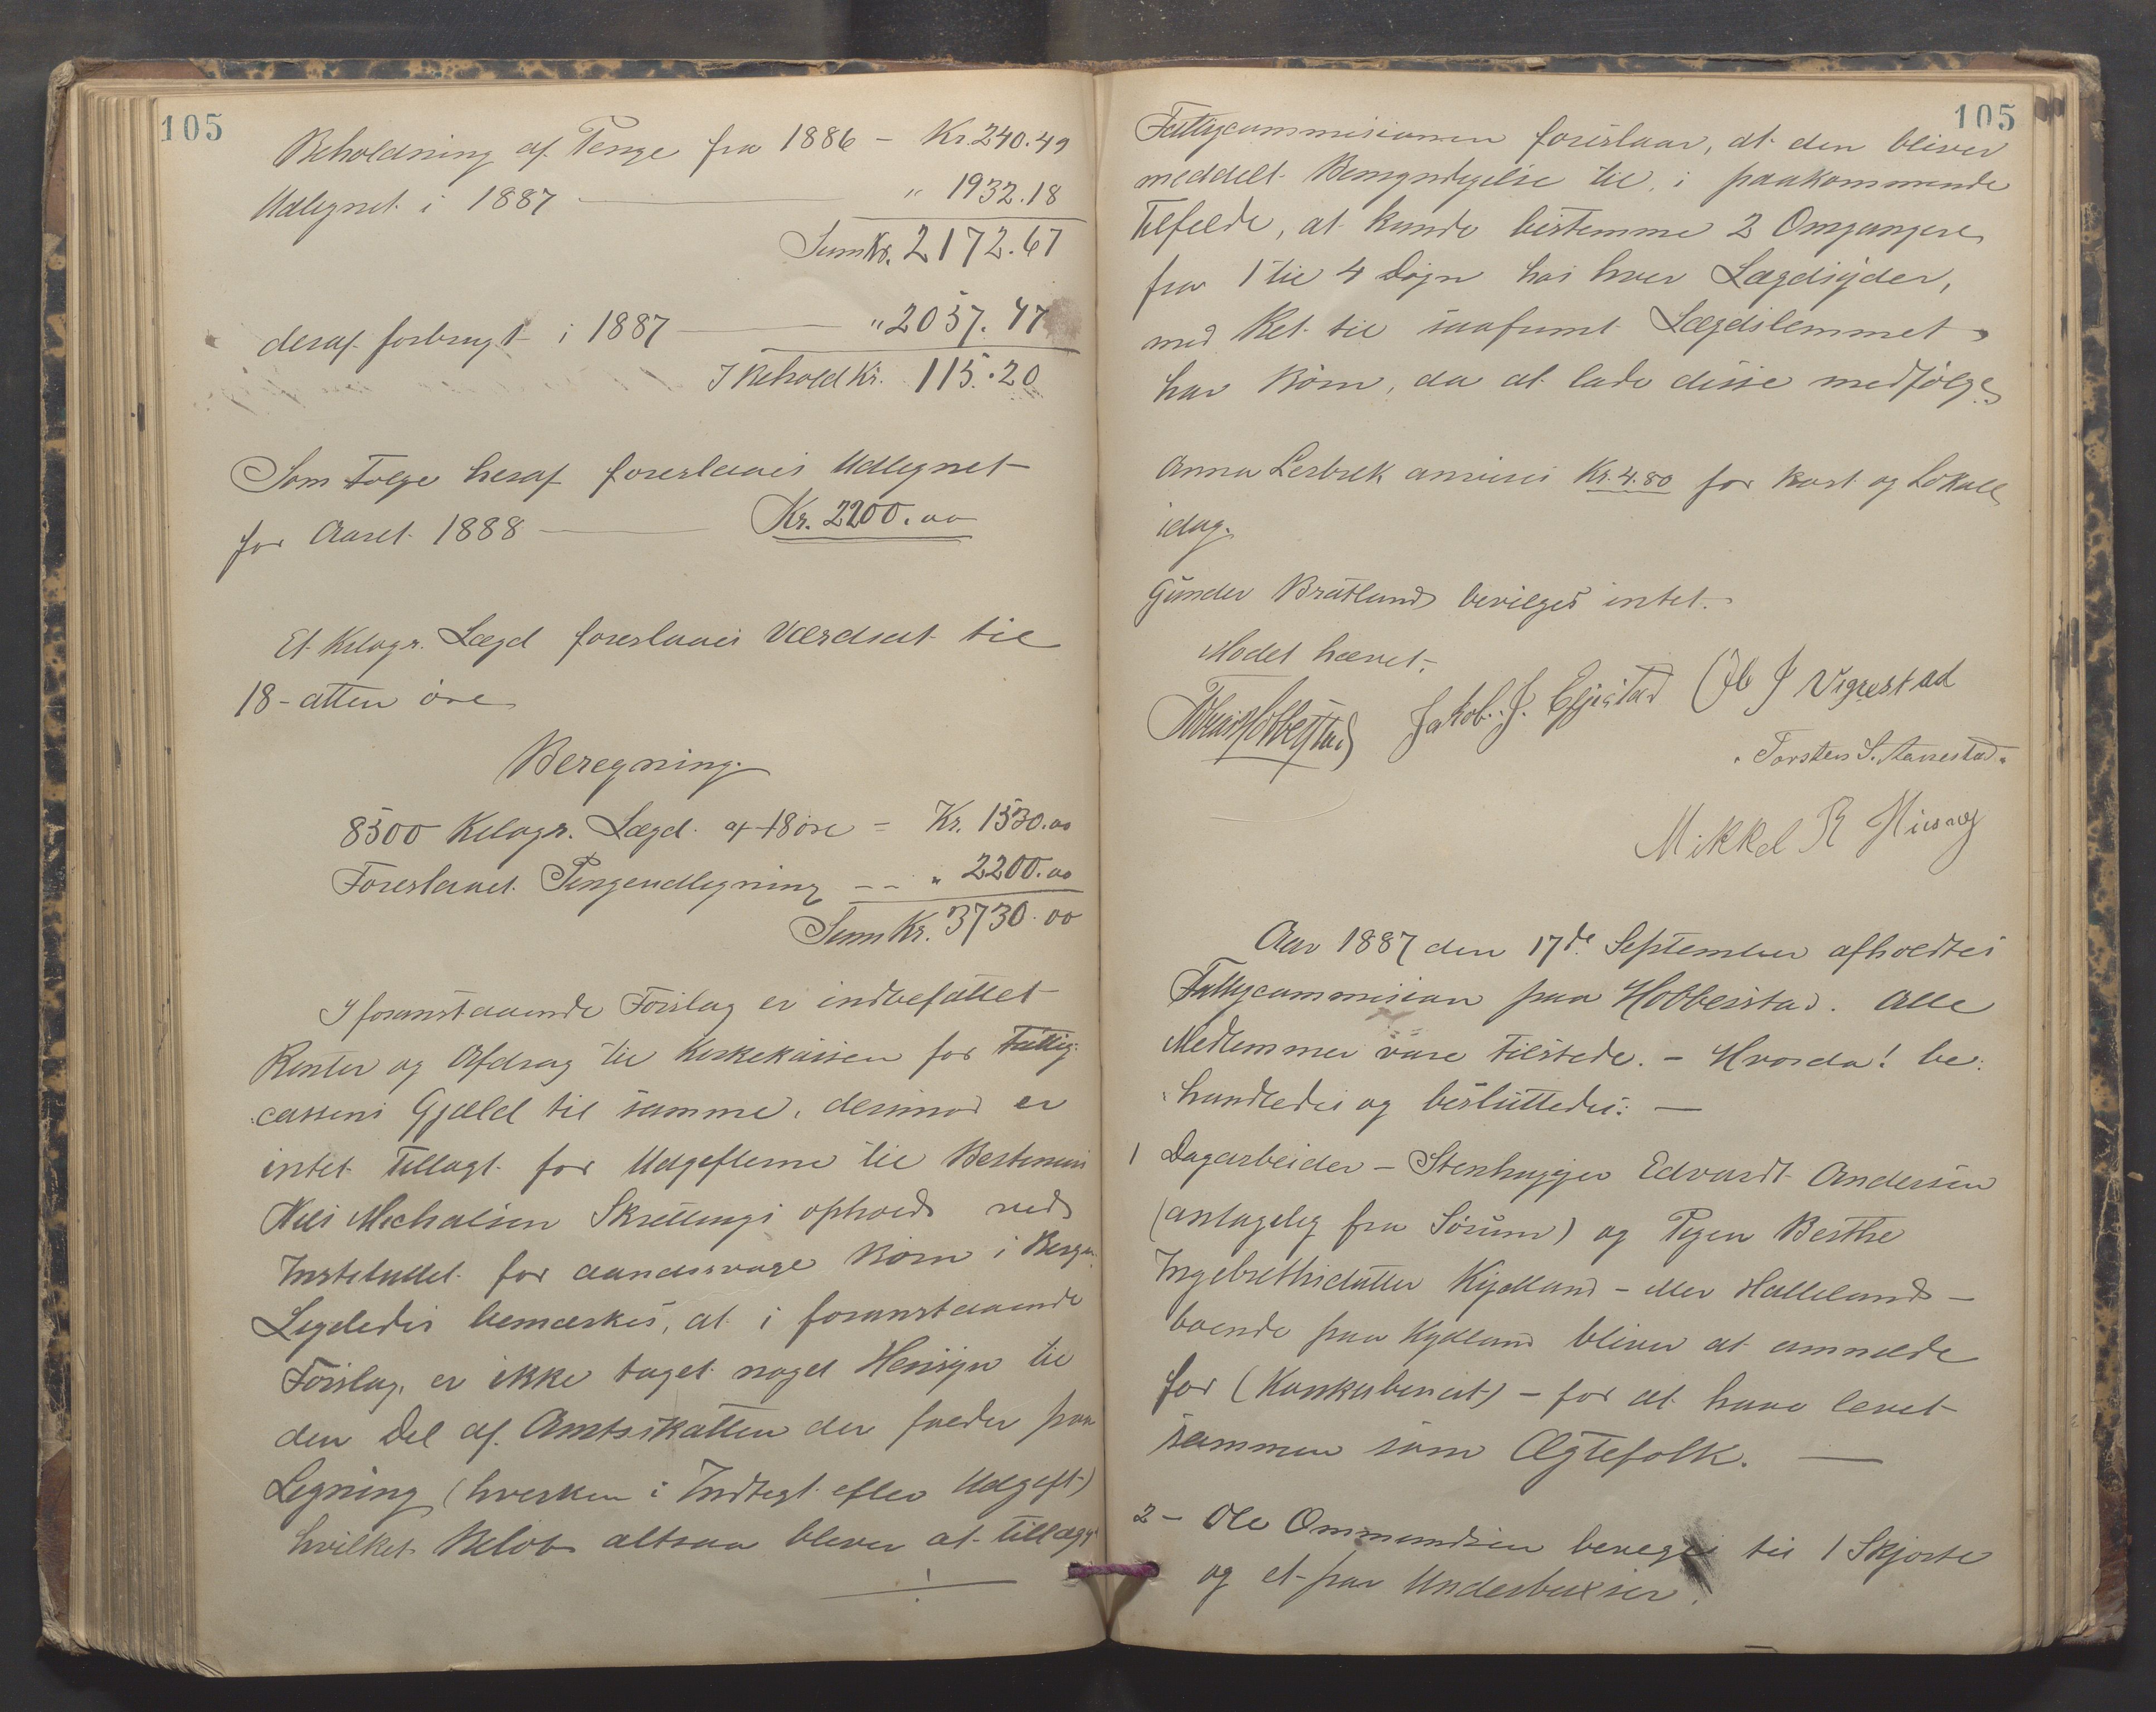 105
Beholdning af Penge fra 1886 - Kr. 240.49
Udlignet i 1887 " 1932.18
Sum Kr. 2172.67
deraf forbrugt i 1887 " 2057.47
I Behold Kr. 115.20
Som Følge heraf foreslaaes Udlignet
for Aaret 1888 Kr. 2200.00
Et Kilogr. Lægd foreslaaes Værdsat til
18 - atten øre
Beregning.
8500 Kilogr. Lægd a 18 øre = Kr. 1530.00
Foreslaaet Pengeudligning -- " 2200.00
Sum Kr. 3730.00
I foranstaaende Forslag er indbefattet
Renter og Afdrag til Kirkekassen for Fattig-
cassens Gjæld til samme, derimod er
intet tillagt for Udgifterne til
Nils Michalsen Skretlings ophold ved
Instituttet for aandssvage Børn i Bergen.
Ligeledes bemærkes, at i foranstaaende
Forslag, er ikke taget noget Hensyn til
den Del af Amtsskatten der falder paa
Ligning (hverken i Indtægt eller Udgift)
hvilket Beløb altsaa bliver at tillægge
105
Fattigcommisionen foreslaar, at den bliver
meddelt Bemyndigelse til, i paakommende
Tilfælde, at kunde bestemme 2 Omgangere
fra 1 til 4 Døgn hos hver Lægdsyder,
med Ret til saafremt Lægdslemmet
har Børn, da at lade disse medfølge
Anna Lerbrek anvises Kr. 4.80 for kost og Lokale
idag.
Gunder Bratland bevilges intet.
Mødet hævet.
Tobias Hobbesstad Jakob J. Egjestad Ole J Vigrestad
Torsten S. Aanestad.
Mikkel R
Aar 1887 den 17de September afholdtes
Fattigcommision paa Hobbesstad. Alle
Medlemmer vare tilstede. - Hvorda! be:
handledes og besluttedes: -
1 Dagarbeider - Stenhugger Edvardt Andersen
(antagelig fra Sørum) og Pigen Berthe
Ingebrethsdatter Kydland - eller Hælleland -
boende paa Kydland bliver at anmælde
for (Konkubinat) - for at have levet
sammen som Ægtefolk. -
2 - Ole Ommundsen beveges til 1 Skjorte
og et par Underbuxser.